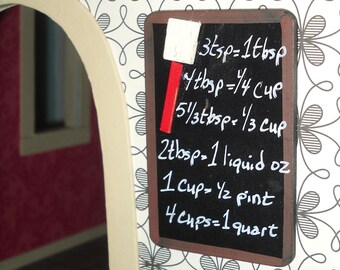 3tsp=1tbsp
4tbsp=1/4 cup
5 1/3tbsp=1/3 cup
2tbsp=1 liquid oz
1 cup=1/2 pint
4 cups=1 quart